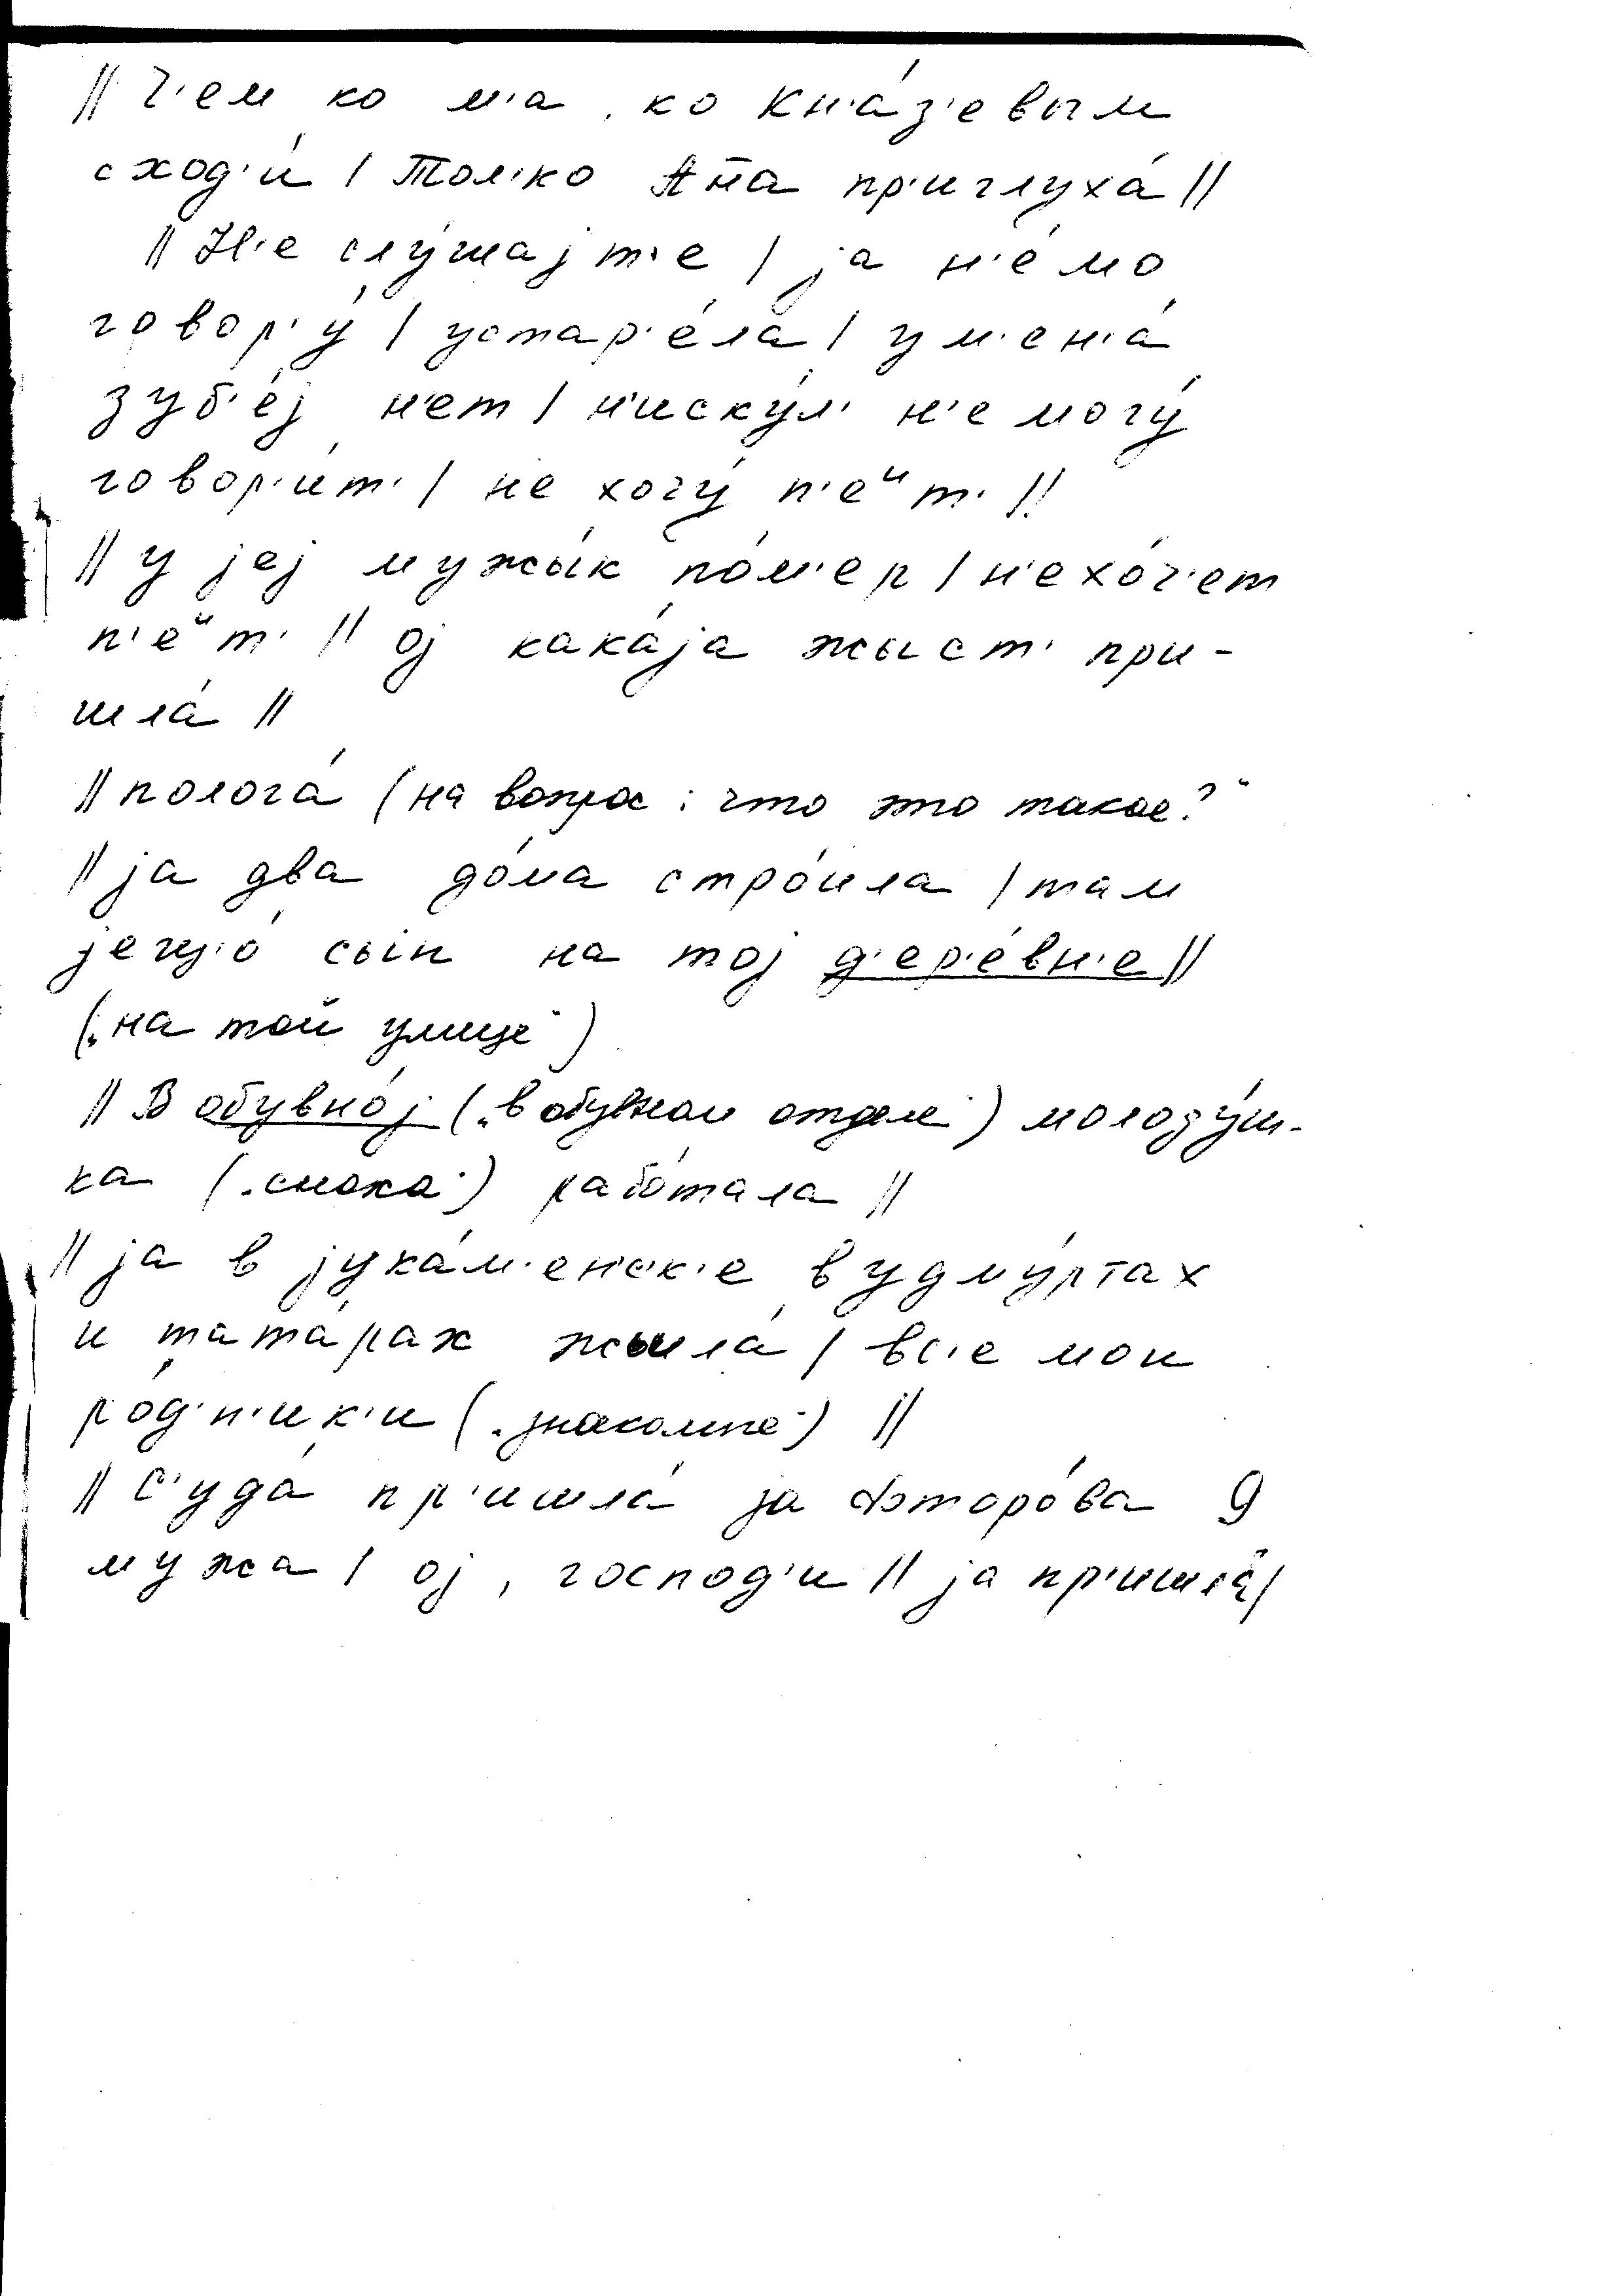 || Ч'ем ко м'а, ко Кн'а́з'евым
сход'и́ | Тол'ко Ан̄а пр'иглуха́ ||
|| Н'е слу́шајт'е | ја н'е́мо
говор'у́ | устар'е́ла | у м'ен'а́
зуб'е́ј н'ет | н'иску́л' н'е могу́
говор'и́т' | не хочу́ п'еᶹт' ||
|| у јеј мужы́к по́м'ер | н'ехо́ч'ет
п'еᶹт' || ој кака́ја жыст' при-
шла́ ||
|| полога́ (на вопрос: „что это такое?"
|| ја два до́ма стро́ила | там
јещ'о́ сын на тој д'ер'е́вн'е ||
(„на той улице")
|| В обувно́ј („в обувном отделе") молоду́ш-
ка („сноха") рабо́тала ||
|| ја в јука́м'енск'е в удму́ртах
и тата́рах жыла́ | вс'е мои
ро́д'н'ик'и („знакомые") ||
|| С'уда́ пр'ишла́ за второ́ва
мужа | ој, господ'и || ја пр'ишла́ |